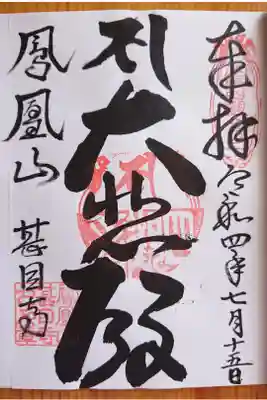 奉拝 令和四年七月十五日
大悲殿
鳳凰山 甚目寺